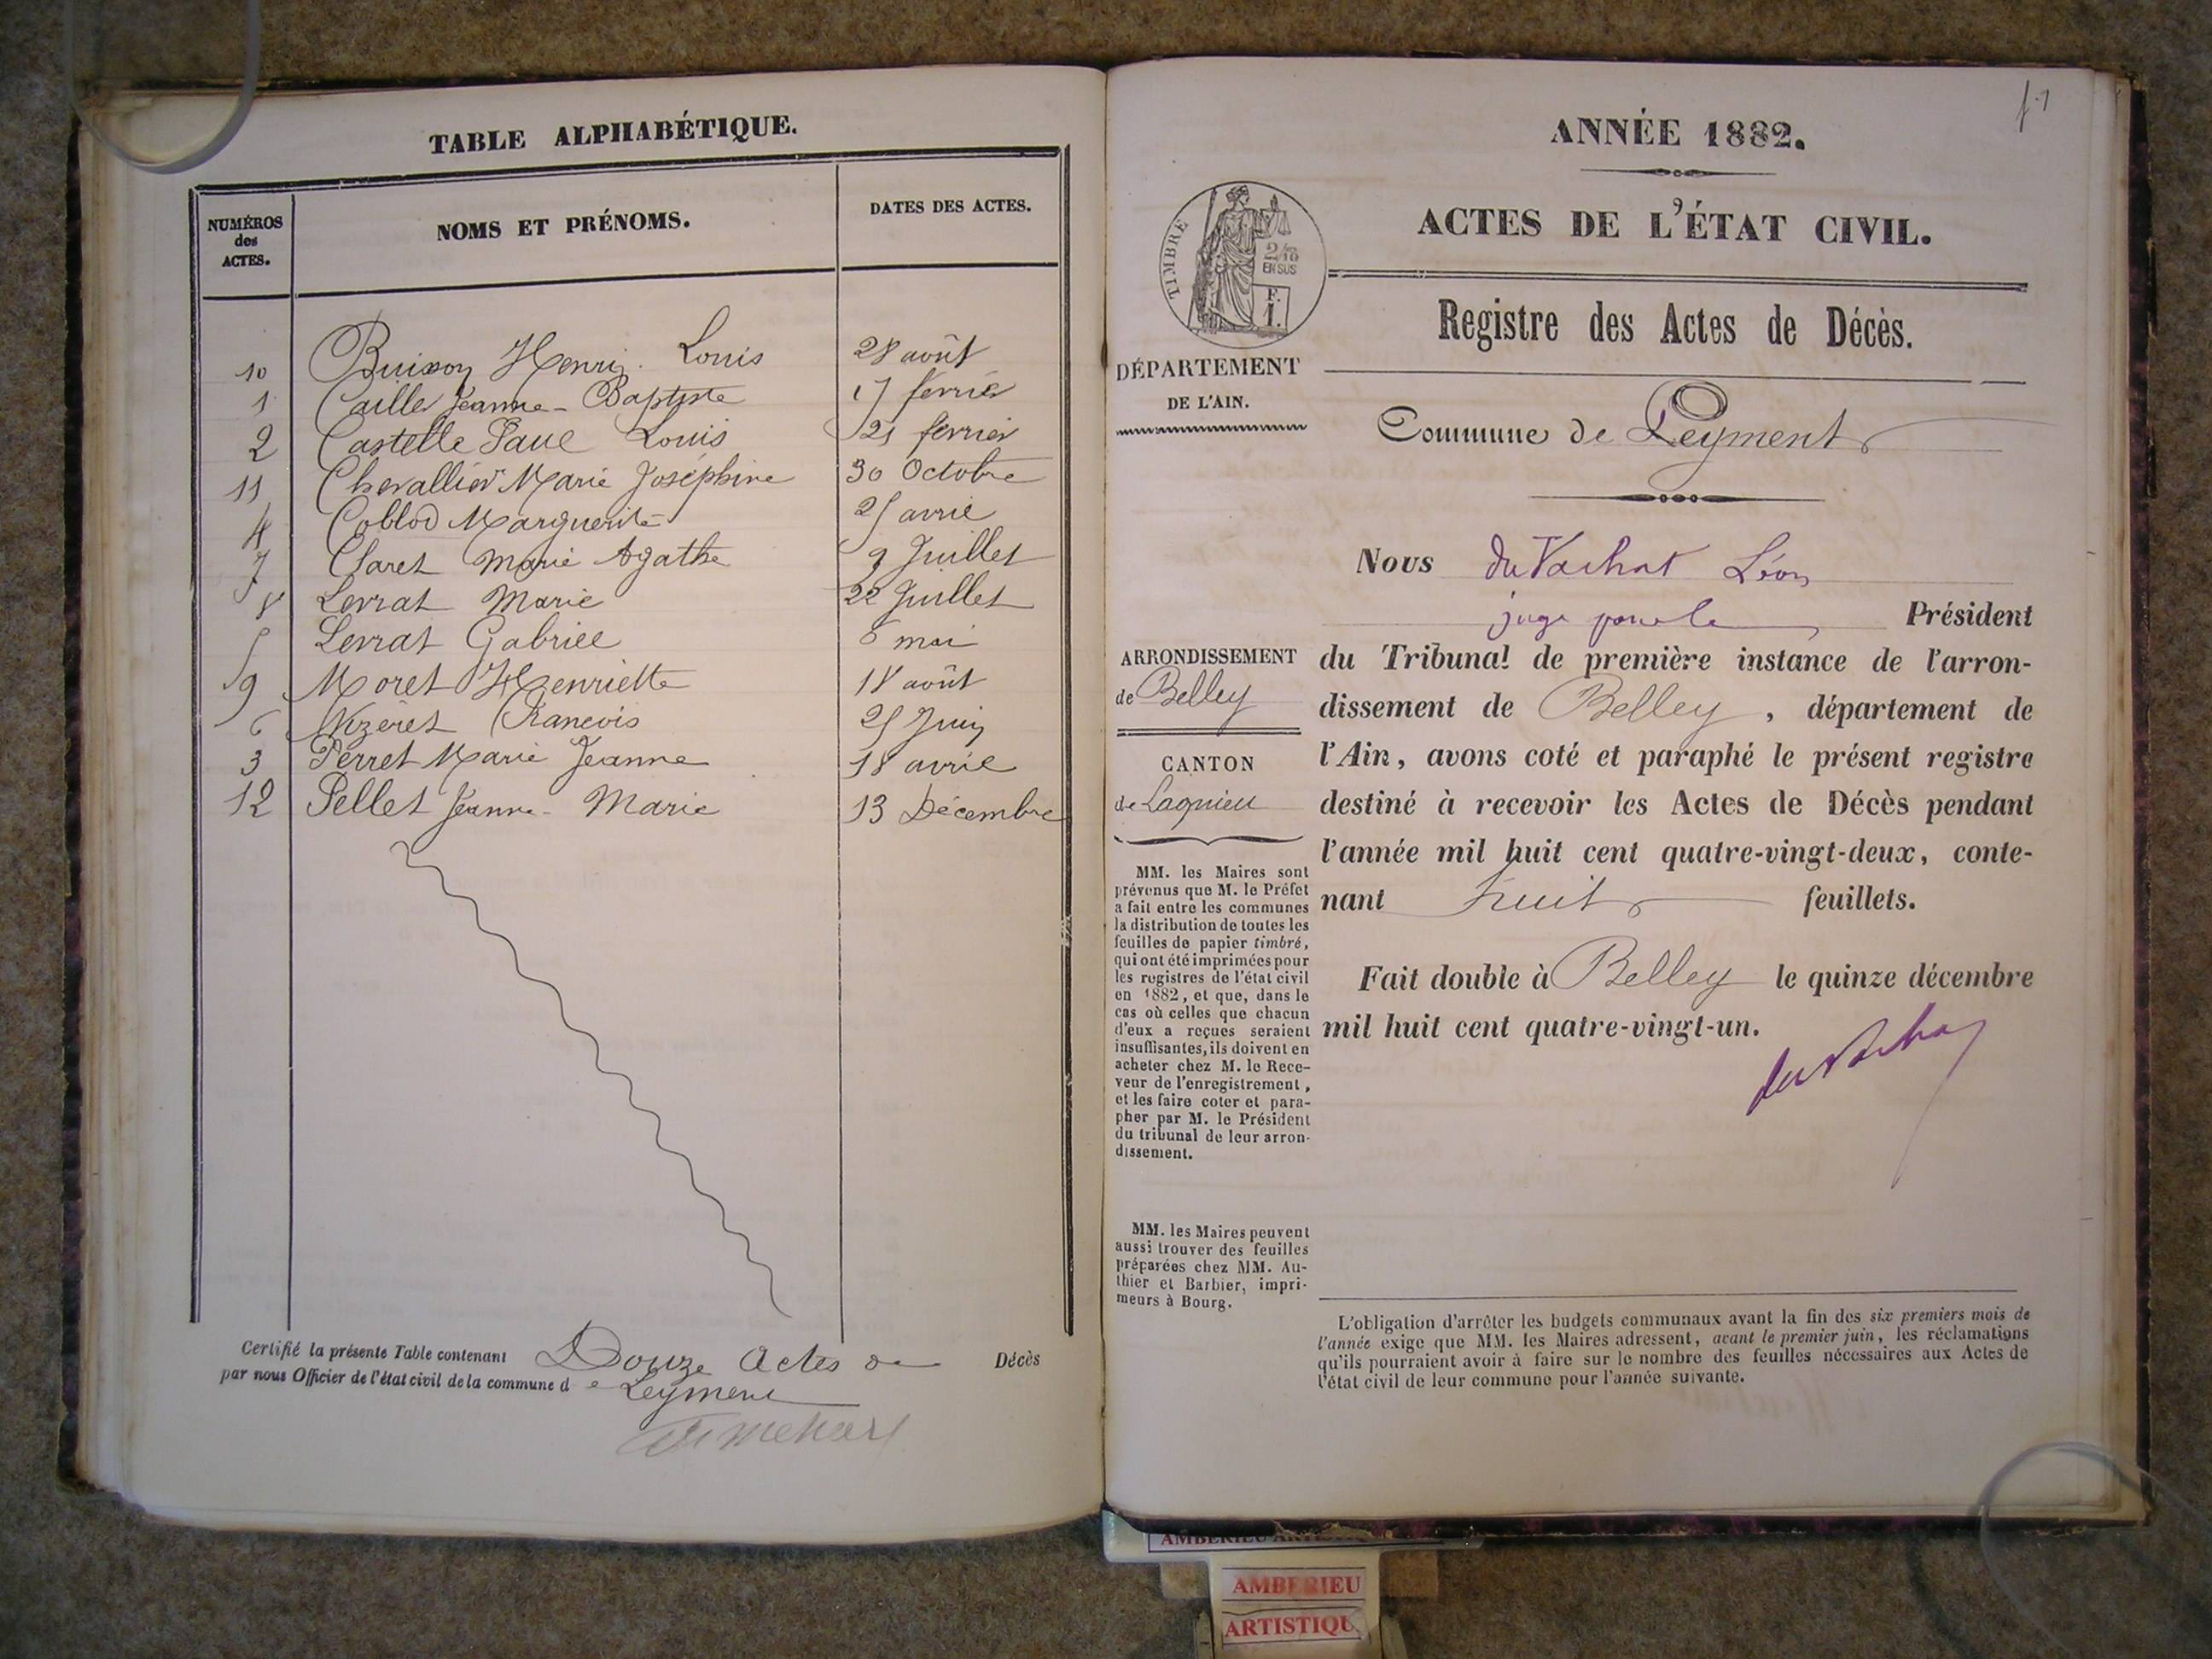 TABLE ALPHABÉTIQUE.
NUMÉROS
des
ACTES.
NOMS ET PRÉNOMS.
DATES DES ACTES.
10 Buisson Henri Louis 28 août
1 Caille Jeanne-Baptiste 17 février
2 Castelle Paul Louis 21 février
11 Chevallier Marie Joséphine 30 Octobre
4 Coblod Marguerite 25 avril
7 Claret Marie Agathe 9 Juillet
8 Levrat Marie 22 Juillet
5 Levrat Gabriel 6 mai
9 Moret Henriette 18 août
6 Nizeret Francois 25 Juin
3 Perret Marie Jeanne 18 avril
12 Pellet Jeanne-Marie 13 Décembre
Certifié la présente Table contenant Douze actes de Décès
par nous Officier de l'état civil de la commune de Leyment
f. 1
ANNÉE 1882.
ACTES DE L'ÉTAT CIVIL.
TIMBRE
2/10
EN SUS
F.
1.
Registre des Actes de Décès.
DÉPARTEMENT
DE L'AIN.
Commune de Leyment
Nous du Vachat Léon
juge pour le Président
ARRONDISSEMENT
de Belley
CANTON
de Lagnieu
du Tribunal de première instance de l'arron-
dissement de Belley, département de
l'Ain, avons coté et paraphé le présent registre
destiné à recevoir les Actes de Décès pendant
l'année mil huit cent quatre-vingt-deux, conte-
nant huit feuillets.
Fait double à Belley le quinze décembre
mil huit cent quatre-vingt-un.
du Vachat
MM. les Maires sont
prévenus que M. le Préfet
a fait entre les communes
la distribution de toutes les
feuilles de papier timbré,
qui ont été imprimées pour
les registres de l'état civil
en 1882, et que, dans le
cas où celles que chacun
d'eux a reçues seraient
insuffisantes, ils doivent en
acheter chez M. le Rece-
veur de l'enregistrement,
et les faire coter et para-
pher par M. le Président
du tribunal de leur arron-
dissement.
MM. les Maires peuvent
aussi trouver des feuilles
préparées chez MM. Au-
thier et Barbier, impri-
meurs à Bourg.
L'obligation d'arrêter les budgets communaux avant la fin des six premiers mois de
l'année exige que MM. les Maires adressent, avant le premier juin, les réclamations
qu'ils pourraient avoir à faire sur le nombre des feuilles nécessaires aux Actes de
l'état civil de leur commune pour l'année suivante.
AMBERIEU
ARTISTIQU